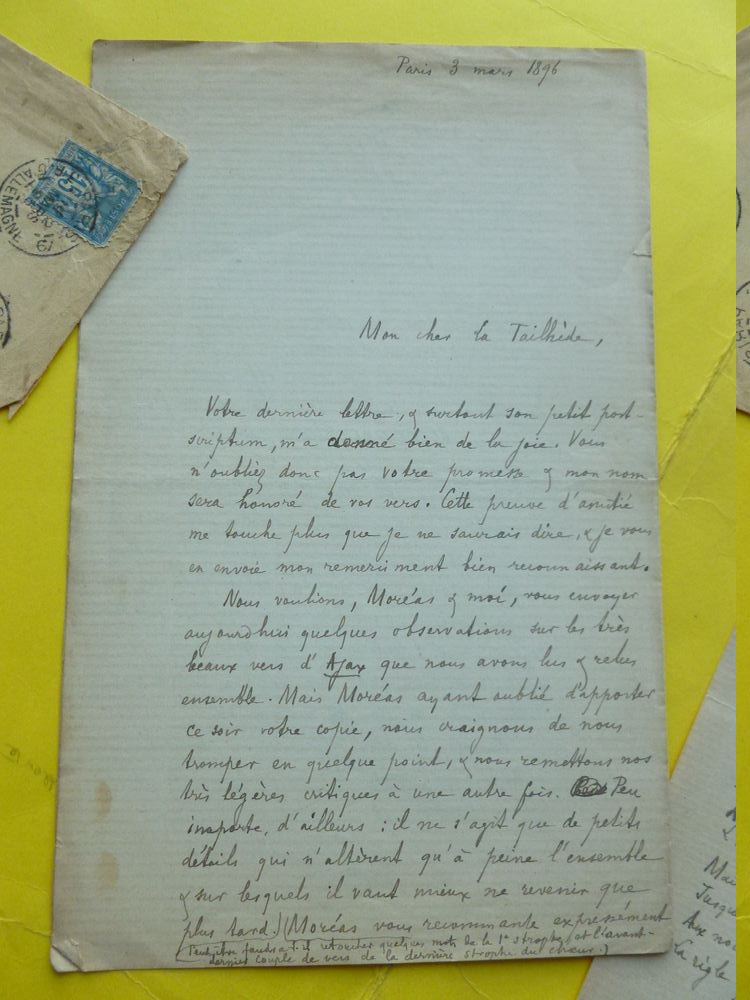 Paris 3 mars 1896
Mon cher la Tailhède,
Votre dernière lettre, & surtout son petit post-
scriptum, m'a donné bien de la joie. Vous
n'oubliez donc pas votre promesse & mon nom
sera honoré de vos vers. Cette preuve d'amitié
me touche plus que je ne saurais dire, & je vous
en envoie mon remerciment bien reconnaissant.
Nous voulions, Moréas & moi, vous envoyer
aujourdhui quelques observations sur les très
beaux vers d'Ajax que nous avons lus & relus
ensemble. Mais Moréas ayant oublié d'apporter
ce soir votre copie, nous craignons de nous
tromper en quelque point, & nous remettons nos
très légères critiques à une autre fois. Peu
importe, d'ailleurs : il ne s'agit que de petits
détails qui n'altèrent qu'à peine l'ensemble
& sur lesquels il vaut mieux ne revenir que
plus tard. (Moréas vous recommande expressément
(Peut-être faudra-t-il retoucher quelques mots de la 1e strophe, et l'avant-
dernier couple de vers de la dernière strophe du chœur.)
ALLEMAGNE
15
Mai
Jusqu
Aux no
La règle